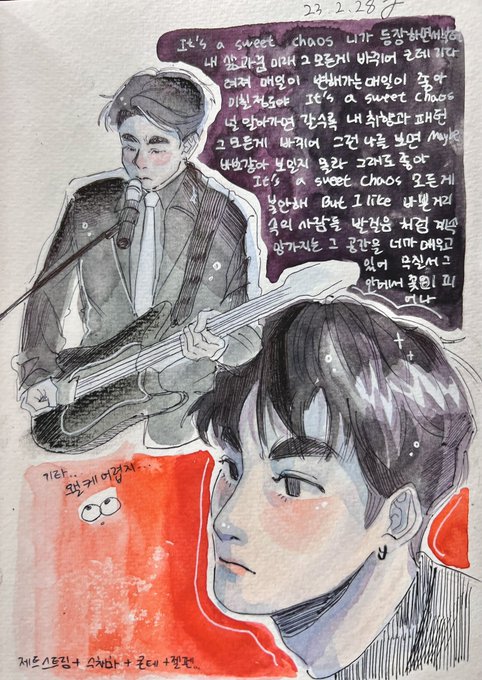 23.2.28
It's a sweet chaos 니가 등장하면서부터
내 삶과 꿈 미래 그 모든게 바뀌어
매일이 변해가는 매일이 좋아
미칠정도야 It's a sweet chaos
널 알아가면 갈수록 내 취향과 패턴
그 모든게 바뀌어 그런 나를 보면 Maybe
바보같아 보일지 몰라 그래도 좋아
It's a sweet chaos 모든게
불안해 But I like 바쁜 거리
속의 사람들 발걸음 처럼 계속
망가지는 그 공간을 너가 메우고
있어 무질서 그
안에서 꽃이 피
어나
기타..
왤케 어렵지...
제트스트림 + 수채화 + 콘테 + 젤펜...